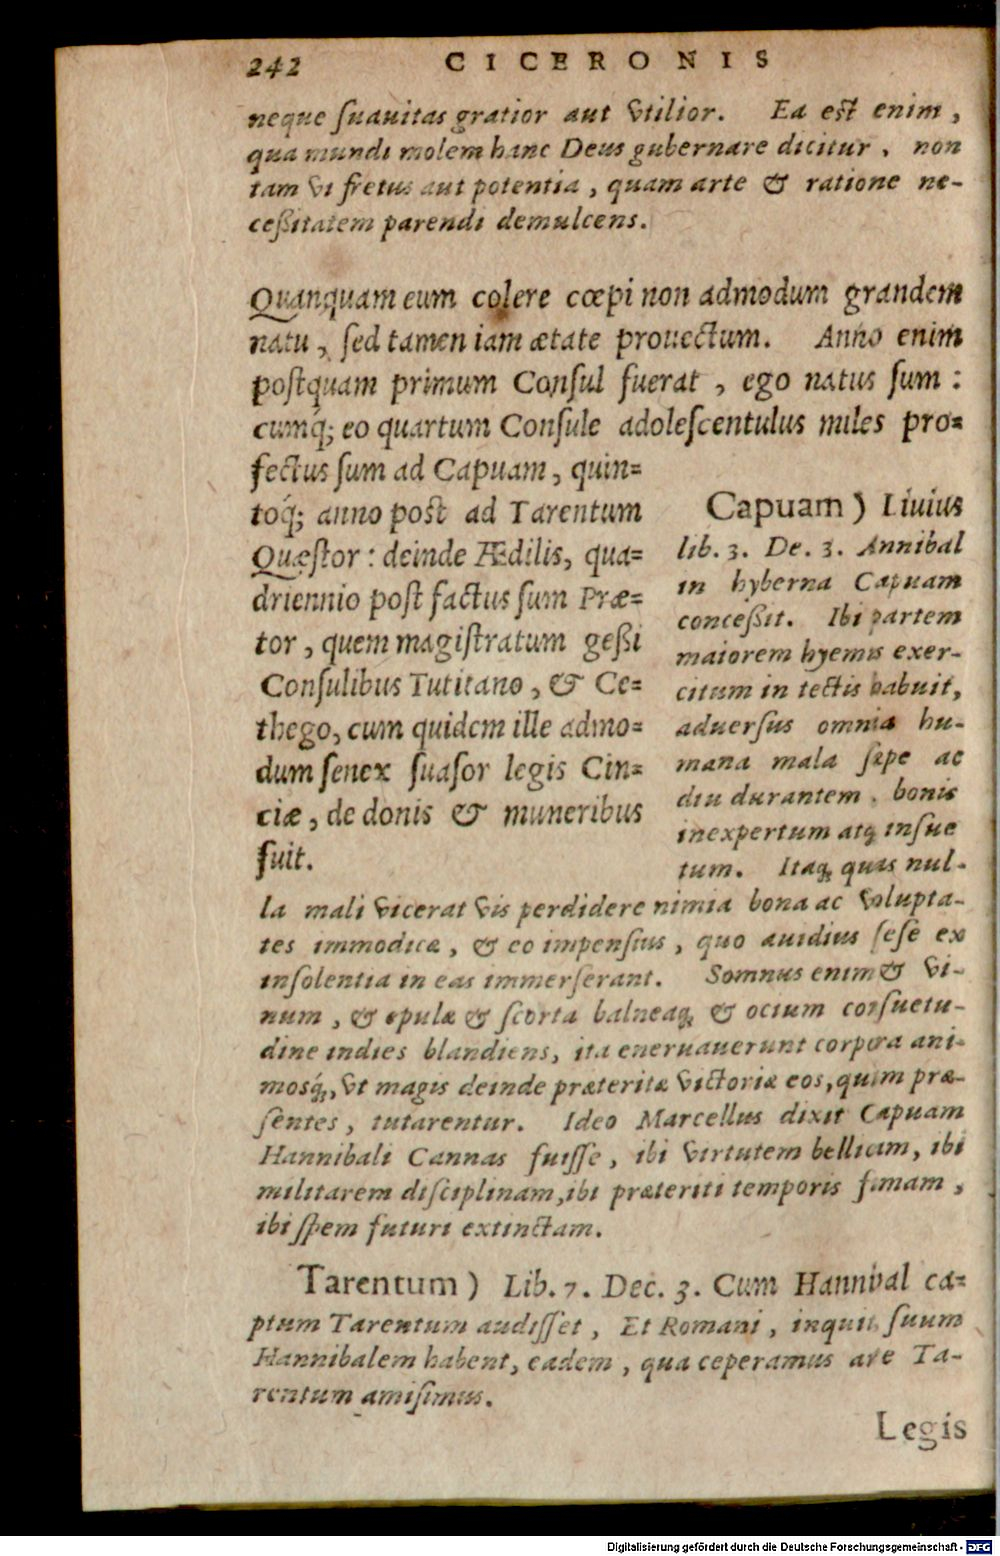 242 CICERONIS
neque ſuauitas gratior aut vtilior. Ea eſt enim,
qua mundi molem hanc Deus gubernare dicitur, non
tam vi fretus aut potentia, quam arte & ratione ne-
ceßitatem parendi demulcens.
Quanquam eum colere cœpi non admodum grandem
natu, ſed tamen iam ætate prouectum. Anno enim
poſtquam primum Conſul fuerat, ego natus ſum:
cumq́; eo quartum Conſule adoleſcentulus miles pro=
fectus ſum ad Capuam, quin=
toq́; anno poſt ad Tarentum
Quæſtor: deinde Ædilis, qua=
driennio poſt factus ſum Præ=
tor, quem magiſtratum geßi
Conſulibus Tutitano, & Ce=
thego, cum quidem ille admo=
dum ſenex ſuaſor legis Cin=
ciæ, de donis & muneribus
fuit.
Capuam) Liuius
lib. 3. De. 3. Annibal
in hyberna Capuam
conceßit. Ibi partem
maiorem hyemis exer-
citum in tectis habuit,
aduerſus omnia hu-
mana mala ſæpe ac
diu durantem, bonis
inexpertum atq; inſue
tum. Itaq; quas nul-
la mali vicerat vis perdidere nimia bona ac volupta-
tes immodicæ, & eo impenſius, quo auidius ſeſe ex
inſolentia in eas immerſerant. Somnus enim & vi-
num, & epulæ & ſcorta balneaq; & ocium conſuetu-
dine indies blandiens, ita eneruauerunt corpora ani-
mosq́;, vt magis deinde præteritæ victoriæ eos, quam præ-
ſentes, tutarentur. Ideo Marcellus dixit Capuam
Hannibali Cannas fuiſſe, ibi virtutem bellicam, ibi
militarem diſciplinam, ibi præteriti temporis famam,
ibi ſpem futuri extinctam.
Tarentum) Lib. 7. Dec. 3. Cum Hannibal ca=
ptum Tarentum audiſſet, Et Romani, inquit, ſuum
Hannibalem habent, eadem, qua ceperamus arte Ta-
rentum amiſimus.
Legis
Digitalisierung gefördert durch die Deutsche Forschungsgemeinschaft - DFG